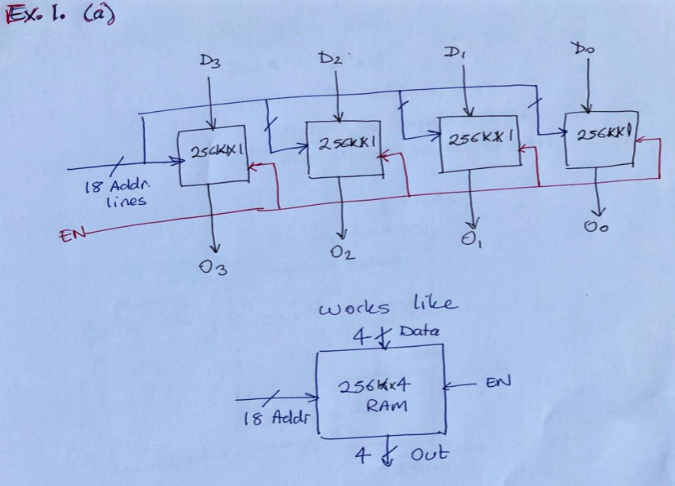 Ex. 1. (a)
D3 D2 D1 D0
256K×1 256K×1 256K×1 256K×1
18 Addr.
lines
EN
O3 O2 O1 O0
works like
4 Data
256K×4
RAM
EN
18 Addr
4 Out